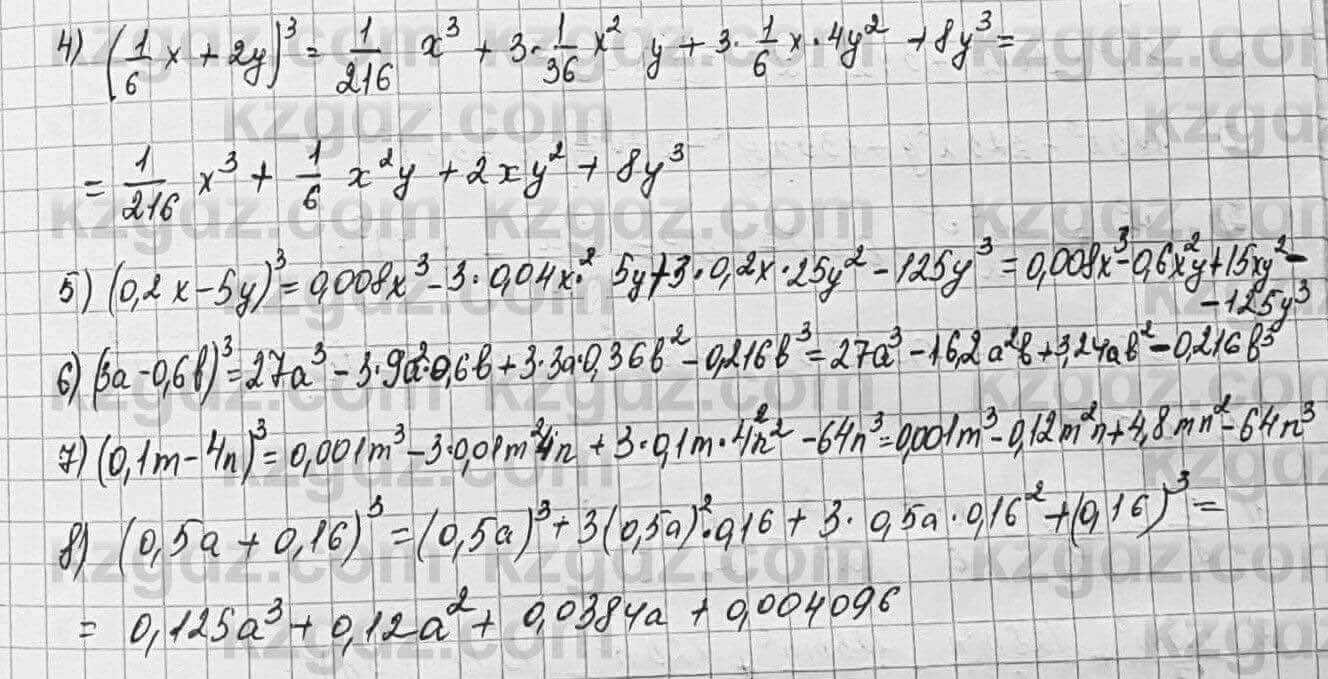 4) (1/6 x + 2y)³ = 1/216 x³ + 3·1/36 x² y + 3·1/6 x·4y² + 8y³ =
= 1/216 x³ + 1/6 x²y + 2xy² + 8y³
5) (0,2x - 5y)³ = 0,008x³ - 3·0,04x·² 5y + 3·0,2x·25y² - 125y³ = 0,008x³ - 0,6x²y + 15xy² -
- 125y³
6) (3a - 0,6b)³ = 27a³ - 3·9a²·0,6b + 3·3a·0,36b² - 0,216b³ = 27a³ - 16,2a²b + 3,24ab² - 0,216b³
7) (0,1m - 4n)³ = 0,001m³ - 3·0,01m²4n + 3·0,1m·4²n² - 64n³ = 0,001m³ - 0,12m²n + 4,8mn² - 64n³
8) (0,5a + 0,16)³ = (0,5a)³ + 3(0,5a)²·0,16 + 3·0,5a·0,16² + (0,16)³ =
= 0,125a³ + 0,12a² + 0,0384a + 0,004096
kzgdz.com